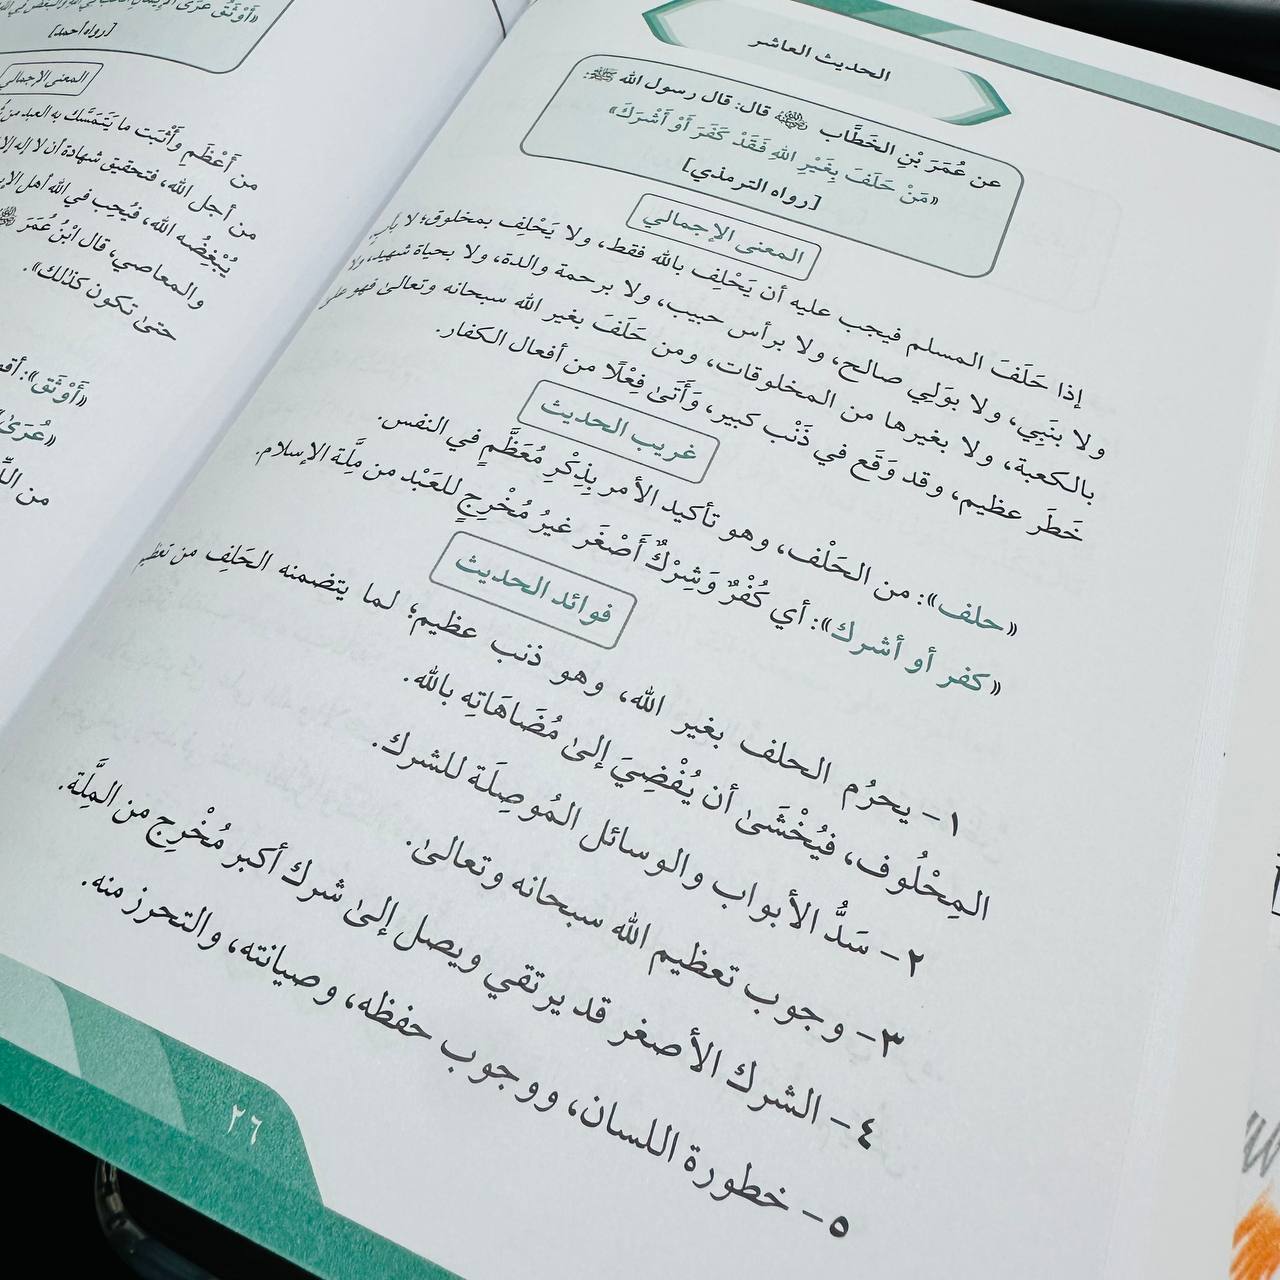 الحديث العاشر
عن عُمَرَ بْنِ الخَطَّاب ﷺ قال: قال رسول الله ﷺ:
«مَنْ حَلَفَ بِغَيْرِ اللهِ فَقَدْ كَفَرَ أَوْ أَشْرَكَ»
[رواه الترمذي]
المعنى الإجمالي
إذا حَلَفَ المسلم فيجب عليه أن يَحْلِف بالله فقط، ولا يَحْلِف بمخلوق؛ لا بأب
ولا بنَبِي، ولا بوَلِي صالح، ولا برأس حبيب، ولا برحمة والدة، ولا بحياة شهيد، ولا
بالكعبة، ولا بغيرها من المخلوقات، ومن حَلَفَ بغير الله سبحانه وتعالىٰ فهو على
خَطَر عظيم، وقد وَقَع في ذَنْب كبير، وَأَتَىٰ فِعْلًا من أفعال الكفار.
غريب الحديث
«حلف»: من الحَلْف، وهو تأكيد الأمر بِذِكْرِ مُعَظَّمٍ في النفس.
«كفر أو أشرك»: أي كُفْرٌ وَشِرْكٌ أَصْغَر غيرُ مُخْرِجٍ للعَبْد من مِلَّة الإسلام.
فوائد الحديث
١- يحرُم الحلف بغير الله، وهو ذنب عظيم؛ لما يتضمنه الحَلِف من تعظيم
المِحْلُوف، فيُخْشَىٰ أن يُفْضِيَ إلىٰ مُضَاهَاتِه بالله.
٢- سَدُّ الأبواب والوسائل المُوصِلَة للشرك.
٣- وجوب تعظيم الله سبحانه وتعالىٰ.
٤- الشرك الأصغر قد يرتقي ويصل إلىٰ شرك أكبر مُخْرِج من المَّلِة.
٥- خطورة اللسان، ووجوب حفظه، وصيانته، والتحرز منه.
٢٦
«أَوْثَقُ عُرَى الإِيمَانِ
[رواه أحمد]
المعنى الإجمالي
من أَعْظَمِ وأَثْبَت ما يَتَمَسَّك به العبد من
من أجل الله، فتحقيق شهادة أن لا إله إلا
يُبْغِضُه الله، فيُحِب في الله أهل
والمعاصي، قال ابْنُ عُمَرَ
حتىٰ تكون كذلك».
«أَوْثَق»:
«عُرَىٰ
من